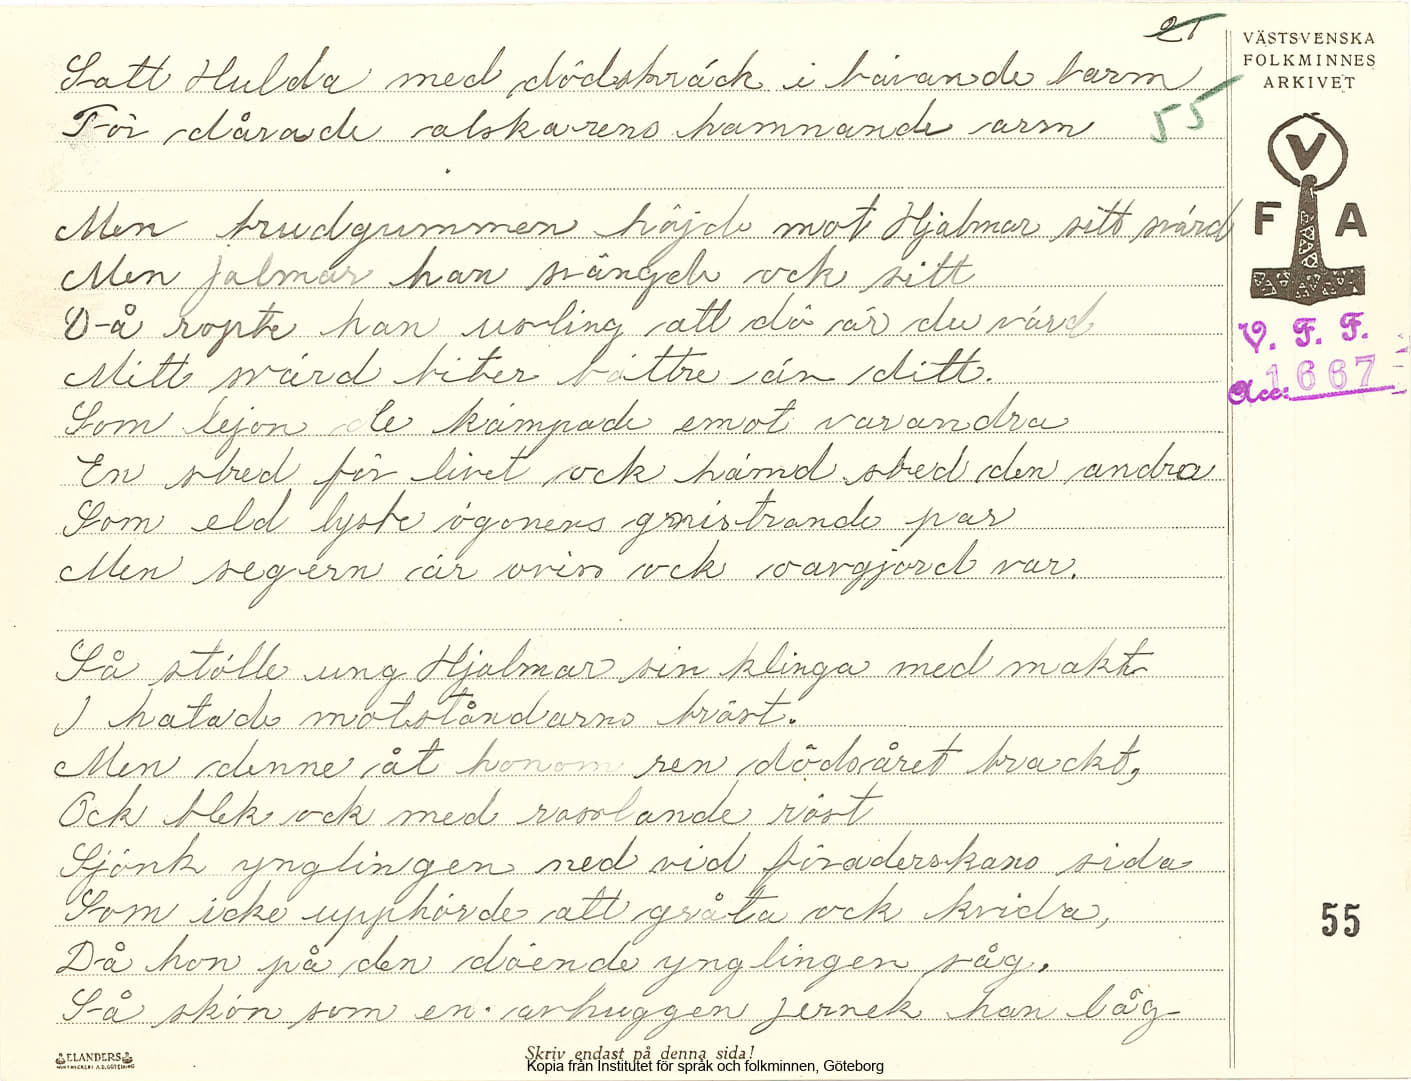 21
VÄSTSVENSKA
FOLKMINNES
ARKIVET
Satt Hulda med dödskräck i bävande barm
För dårade älskarens hämnande arm
55
Men brudgummen höjde mot Hjalmar sitt svärd
Men jalmar han svängde ock sitt
Då ropte han usling att dö är du värd
Mitt svärd biter bättre än ditt.
Som lejon de kämpade emot varandra
En stred för livet ock hämd stred den andra
Som eld lyste ögonens gnistrande par
Men segern är oviss ock oavgjord var.
V F A
V. F. F.
Acc: 1667
Så stötte ung Hjalmar sin klinga med makt
I hatade motståndarns bröst.
Men denne åt honom ren dödssåret brackt,
Ock blek ock med rosslande röst
Sjönk ynglingen ned vid föräderskans sida
Som icke upphörde att gråta ock kvida,
Då hon på den döende ynglingen såg.
Så skön som en avhuggen jernek han låg
55
ELANDERS
Skriv endast på denna sida!
Kopia från Institutet för språk och folkminnen, Göteborg